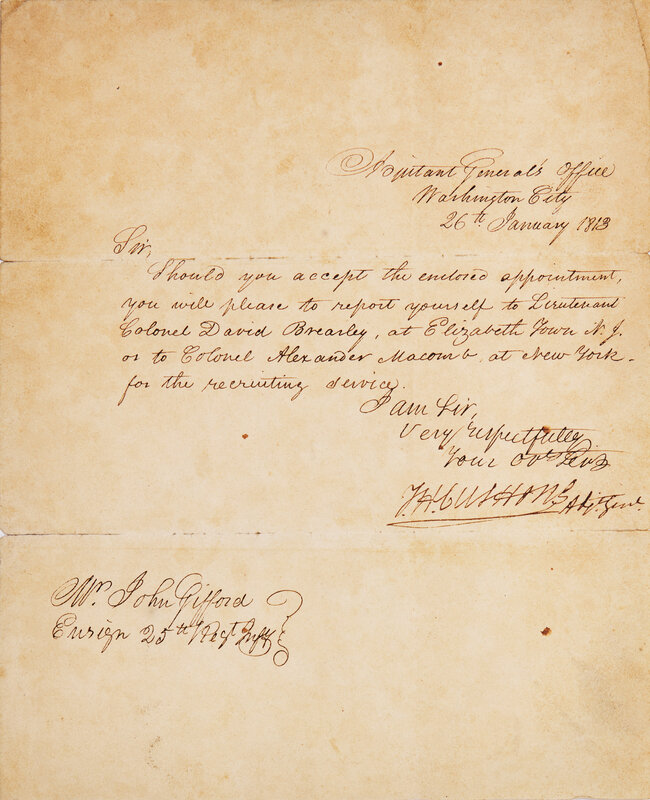 Adjutant General's Office
Washington City
26th January 1813
Sir,
Should you accept the enclosed appointment,
you will please to report yourself to Lieutenant
Colonel David Brearley, at Elizabeth Town N.J.
or to Colonel Alexander Macomb, at New York-
for the recruiting service.
I am Sir,
Very respectfully
Your Obt Servt
T.H. CUSHING Adjt. Genl.
Mr. John Gifford
Ensign 25th Regt Infy